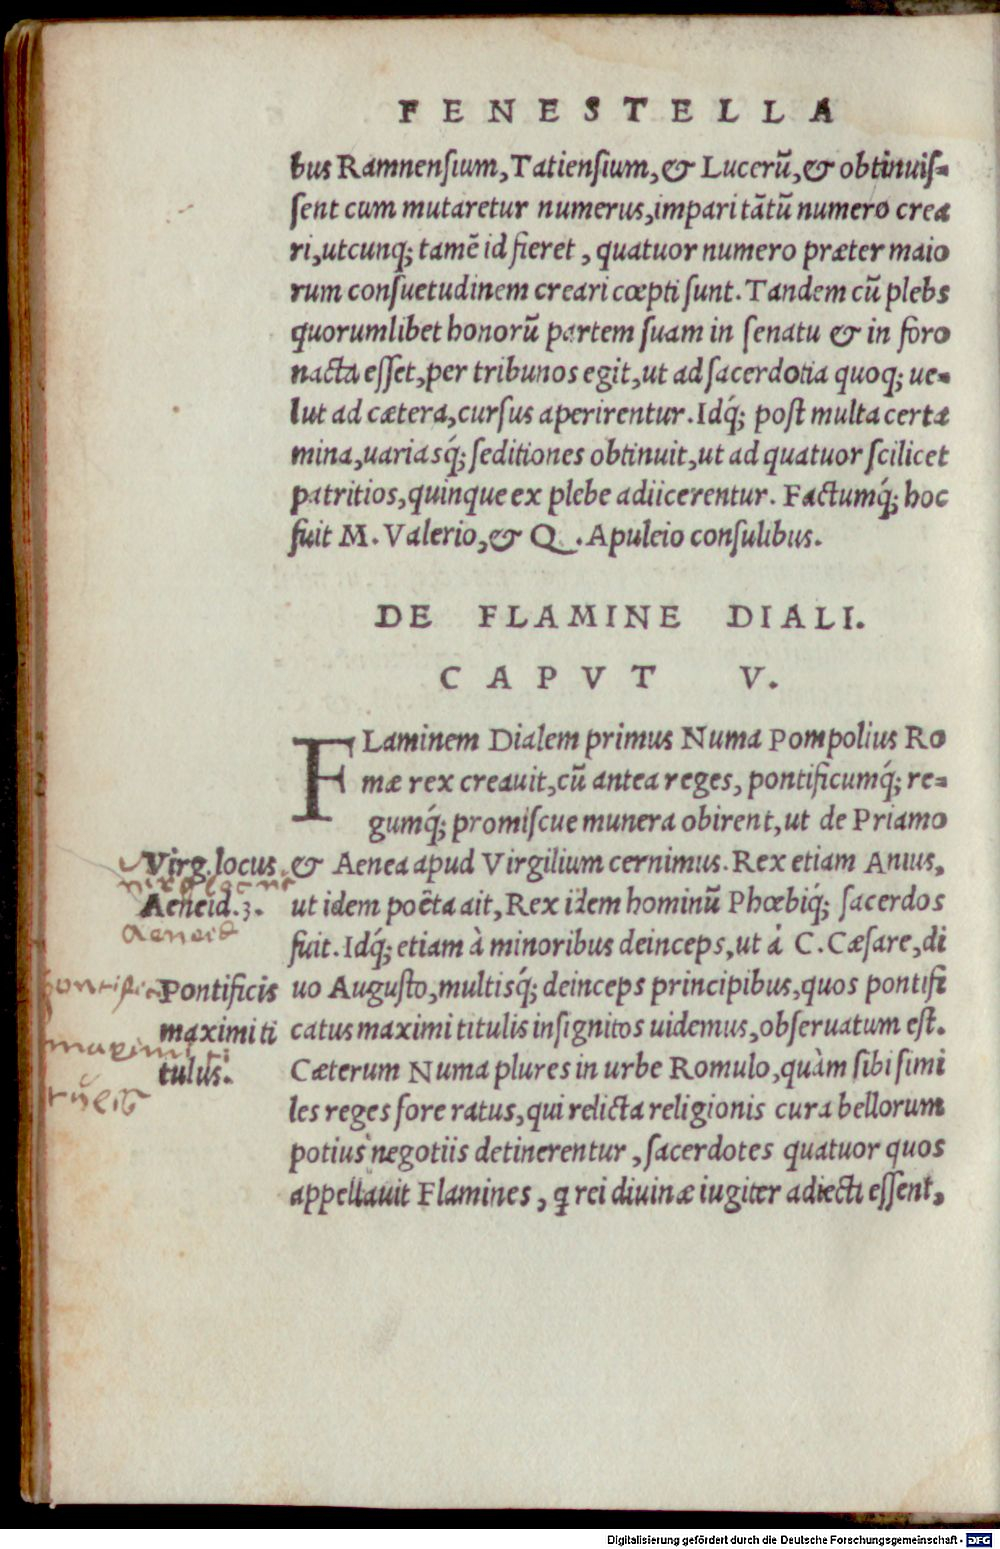 FENESTELLA
bus Ramnensium, Tatiensium, & Lucerũ, & obtinuiſ=
ſent cum mutaretur numerus, impari tãtũ numero crea
ri, utcunq; tamẽ id fieret, quatuor numero præter maio
rum conſuetudinem creari cœpti ſunt. Tandem cũ plebs
quorumlibet honorũ partem ſuam in ſenatu & in foro
nacta eſſet, per tribunos egit, ut ad ſacerdotia quoq; ue=
lut ad cætera, curſus aperirentur. Idq́; poſt multa certa
mina, uariasq́; ſeditiones obtinuit, ut ad quatuor ſcilicet
patritios, quinque ex plebe adiicerentur. Factumq́; hoc
fuit M. Valerio, & Q. Apuleio conſulibus.
DE FLAMINE DIALI.
CAPVT V.
FLaminem Dialem primus Numa Pompolius Ro
mæ rex creauit, cũ antea reges, pontificumq́; re=
gumq́; promiſcue munera obirent, ut de Priamo
& Aenea apud Virgilium cernimus. Rex etiam Anius,
ut idem poêta ait, Rex idem hominũ Phœbiq́; ſacerdos
fuit. Idq́; etiam à minoribus deinceps, ut á C. Cæſare, di
uo Auguſto, multisq́; deinceps principibus, quos pontifi
catus maximi titulis inſignitos uidemus, obſeruatum eſt.
Cæterum Numa plures in urbe Romulo, quàm ſibi ſimi
les reges fore ratus, qui relicta religionis cura bellorum
potius negotiis detinerentur, ſacerdotes quatuor quos
appellauit Flamines, ꝗ rei diuinæ iugiter adiecti eſſent,
Virg. locus
virg locus
Aeneid. 3.
Aeneid
Pontificis
pontificis
maximi ti
maximi ti
tulus.
Digitalisierung gefördert durch die Deutsche Forschungsgemeinschaft - DFG